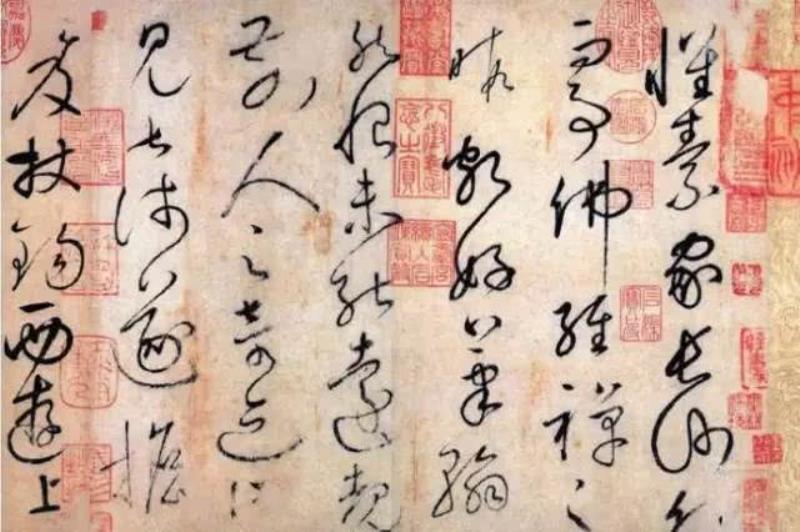 懷素家長沙幼
而事佛經禪之
暇頗好筆翰
然恨未能遠覩
前人之奇迹所
見甚淺遂擔
笈杖錫西遊上